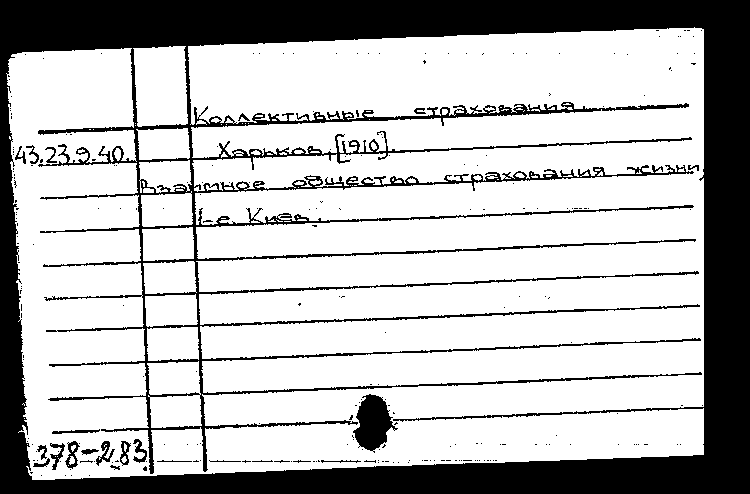 Коллективные страхования.
43.23.9.40. Харьков, [1910].
Взаимное общество страхования жизни,
1-е. Киев.
378-283